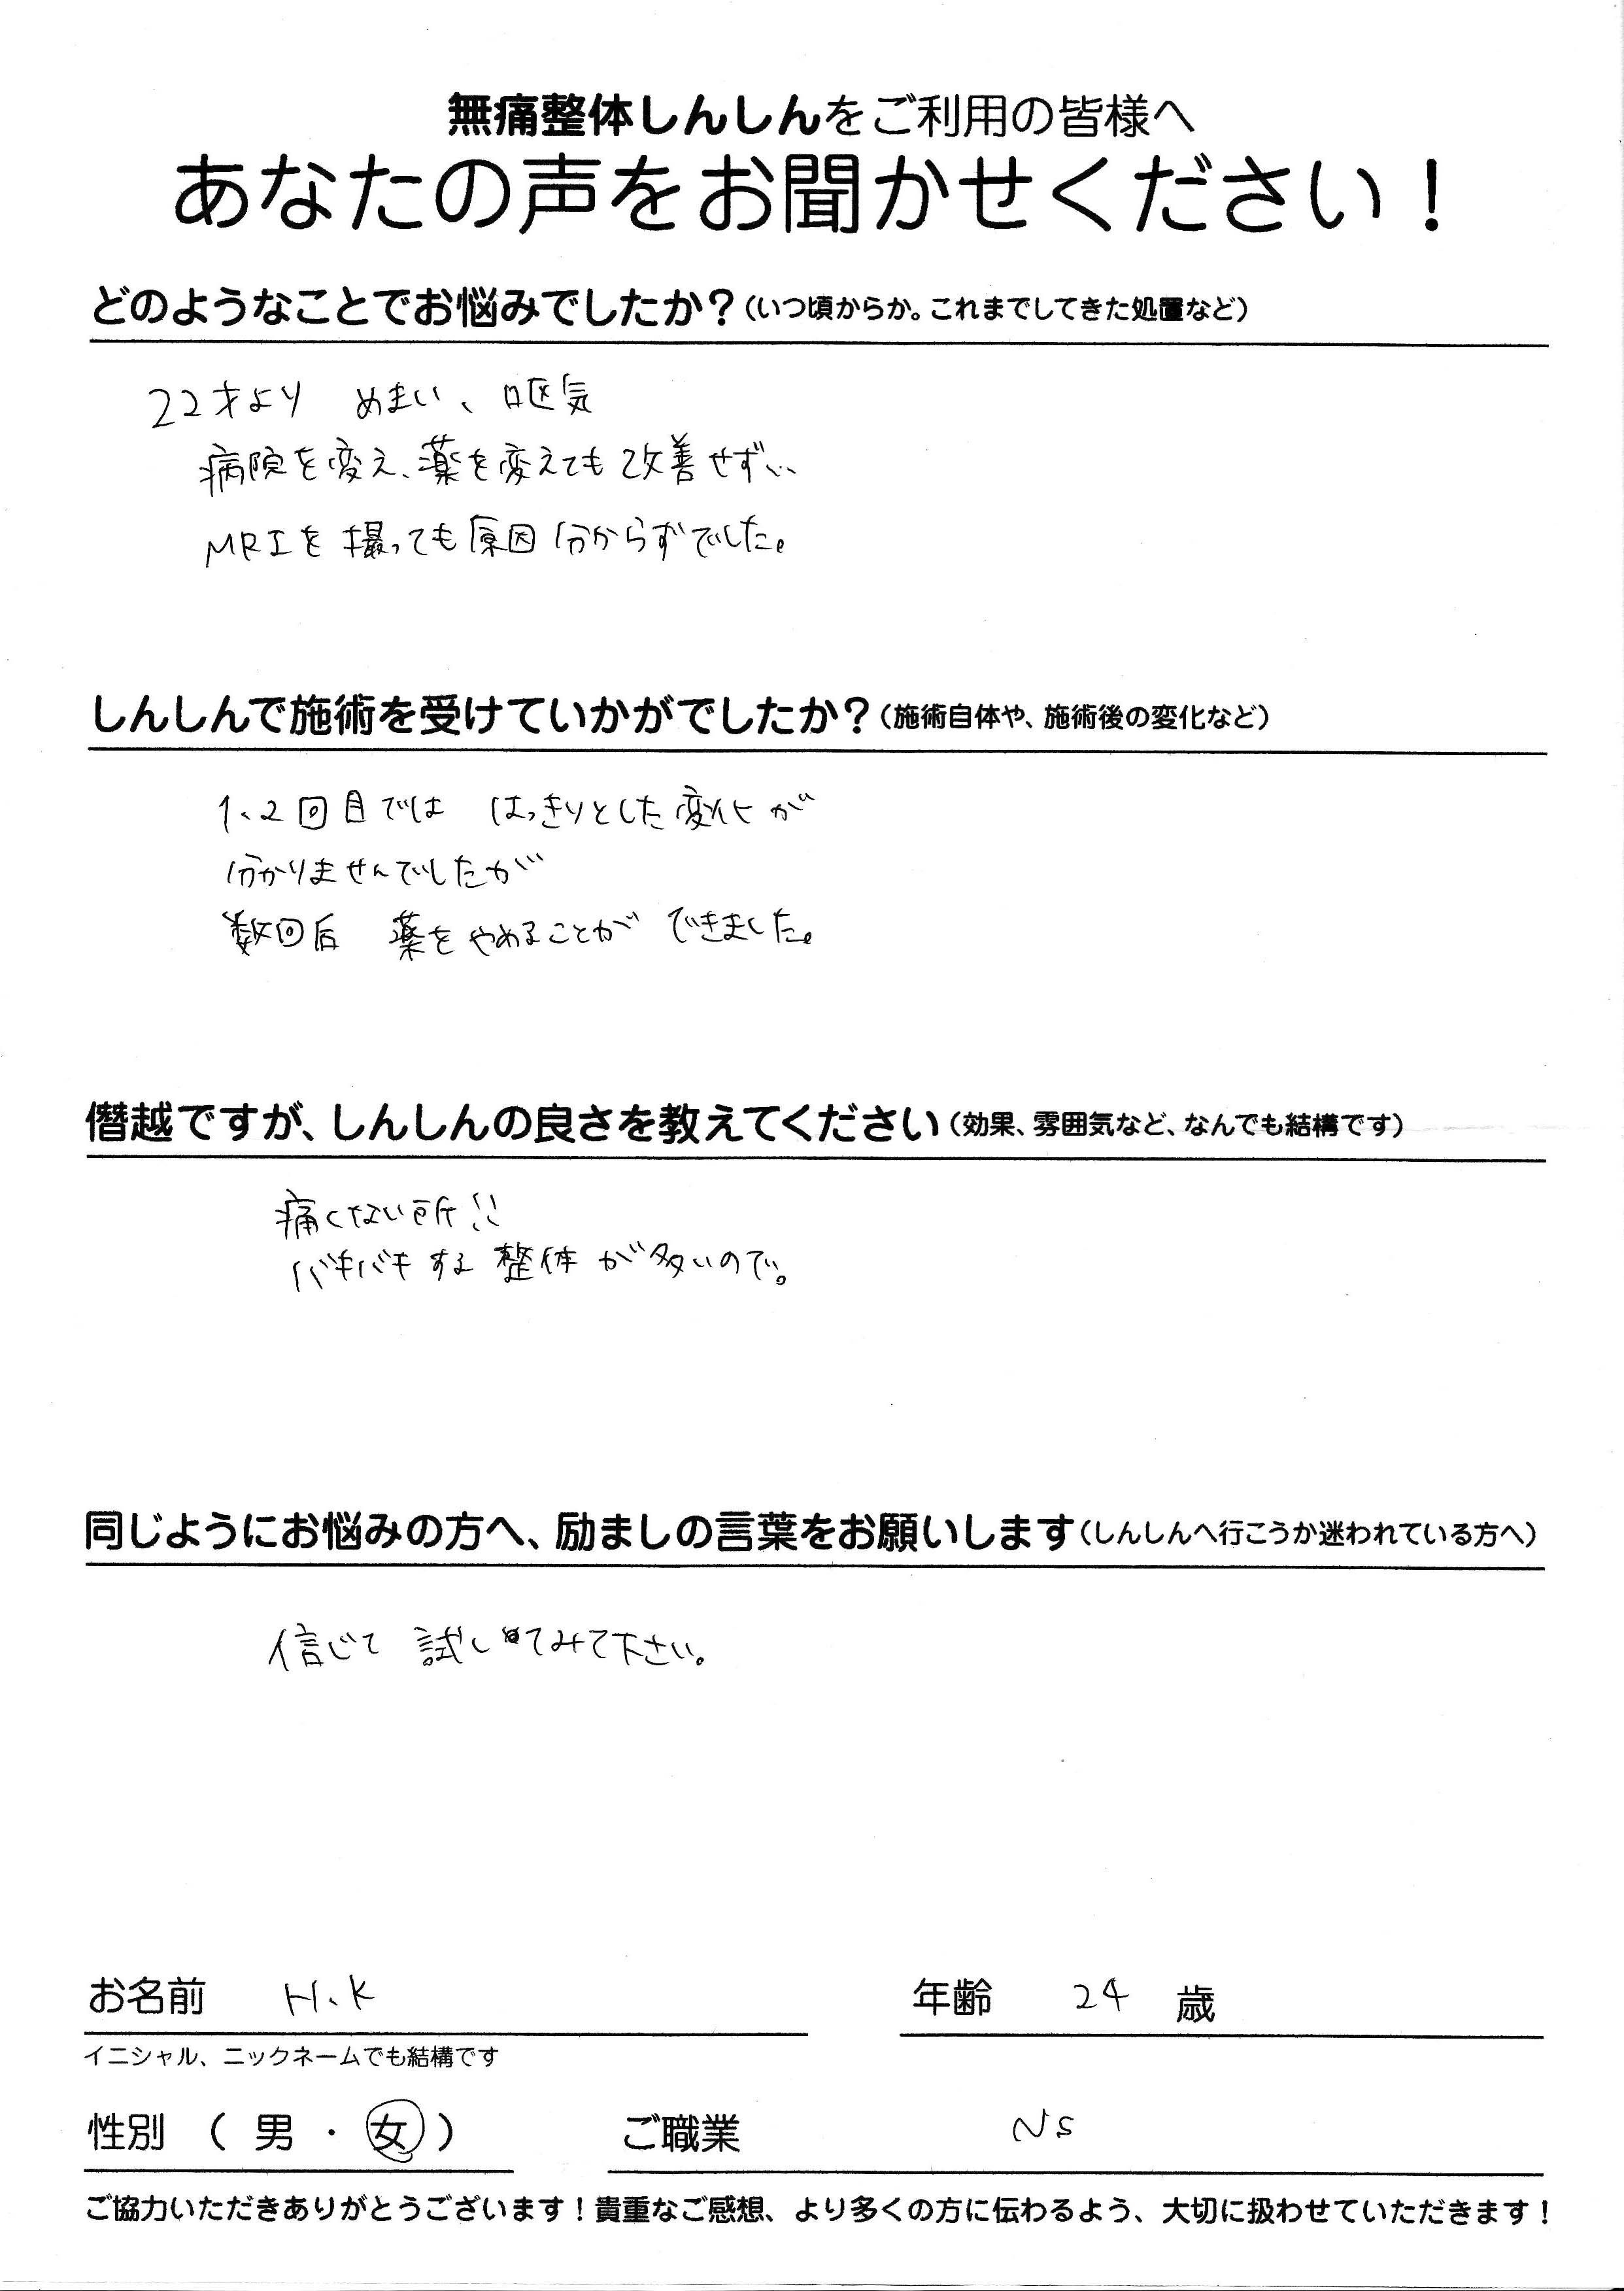 無痛整体しんしんをご利用の皆様へ
あなたの声をお聞かせください！
どのようなことでお悩みでしたか？（いつ頃からか。これまでしてきた処置など）
22才より　めまい、嘔気
病院を変え、薬を変えても改善せず…
MRIを撮っても原因分からずでした。
しんしんで施術を受けていかがでしたか？（施術自体や、施術後の変化など）
1、2回目では　はっきりとした変化が
分かりませんでしたが
数回后　薬をやめることが　できました。
僭越ですが、しんしんの良さを教えてください（効果、雰囲気など、なんでも結構です）
痛くない所!!
バキバキする整体が多いので。
同じようにお悩みの方へ、励ましの言葉をお願いします（しんしんへ行こうか迷われている方へ）
信じて　試してみて下さい。
お名前　H.K　年齢　24　歳
イニシャル、ニックネームでも結構です
性別　（　男　・　女　）　ご職業　Ns
ご協力いただきありがとうございます！貴重なご感想、より多くの方に伝わるよう、大切に扱わせていただきます！